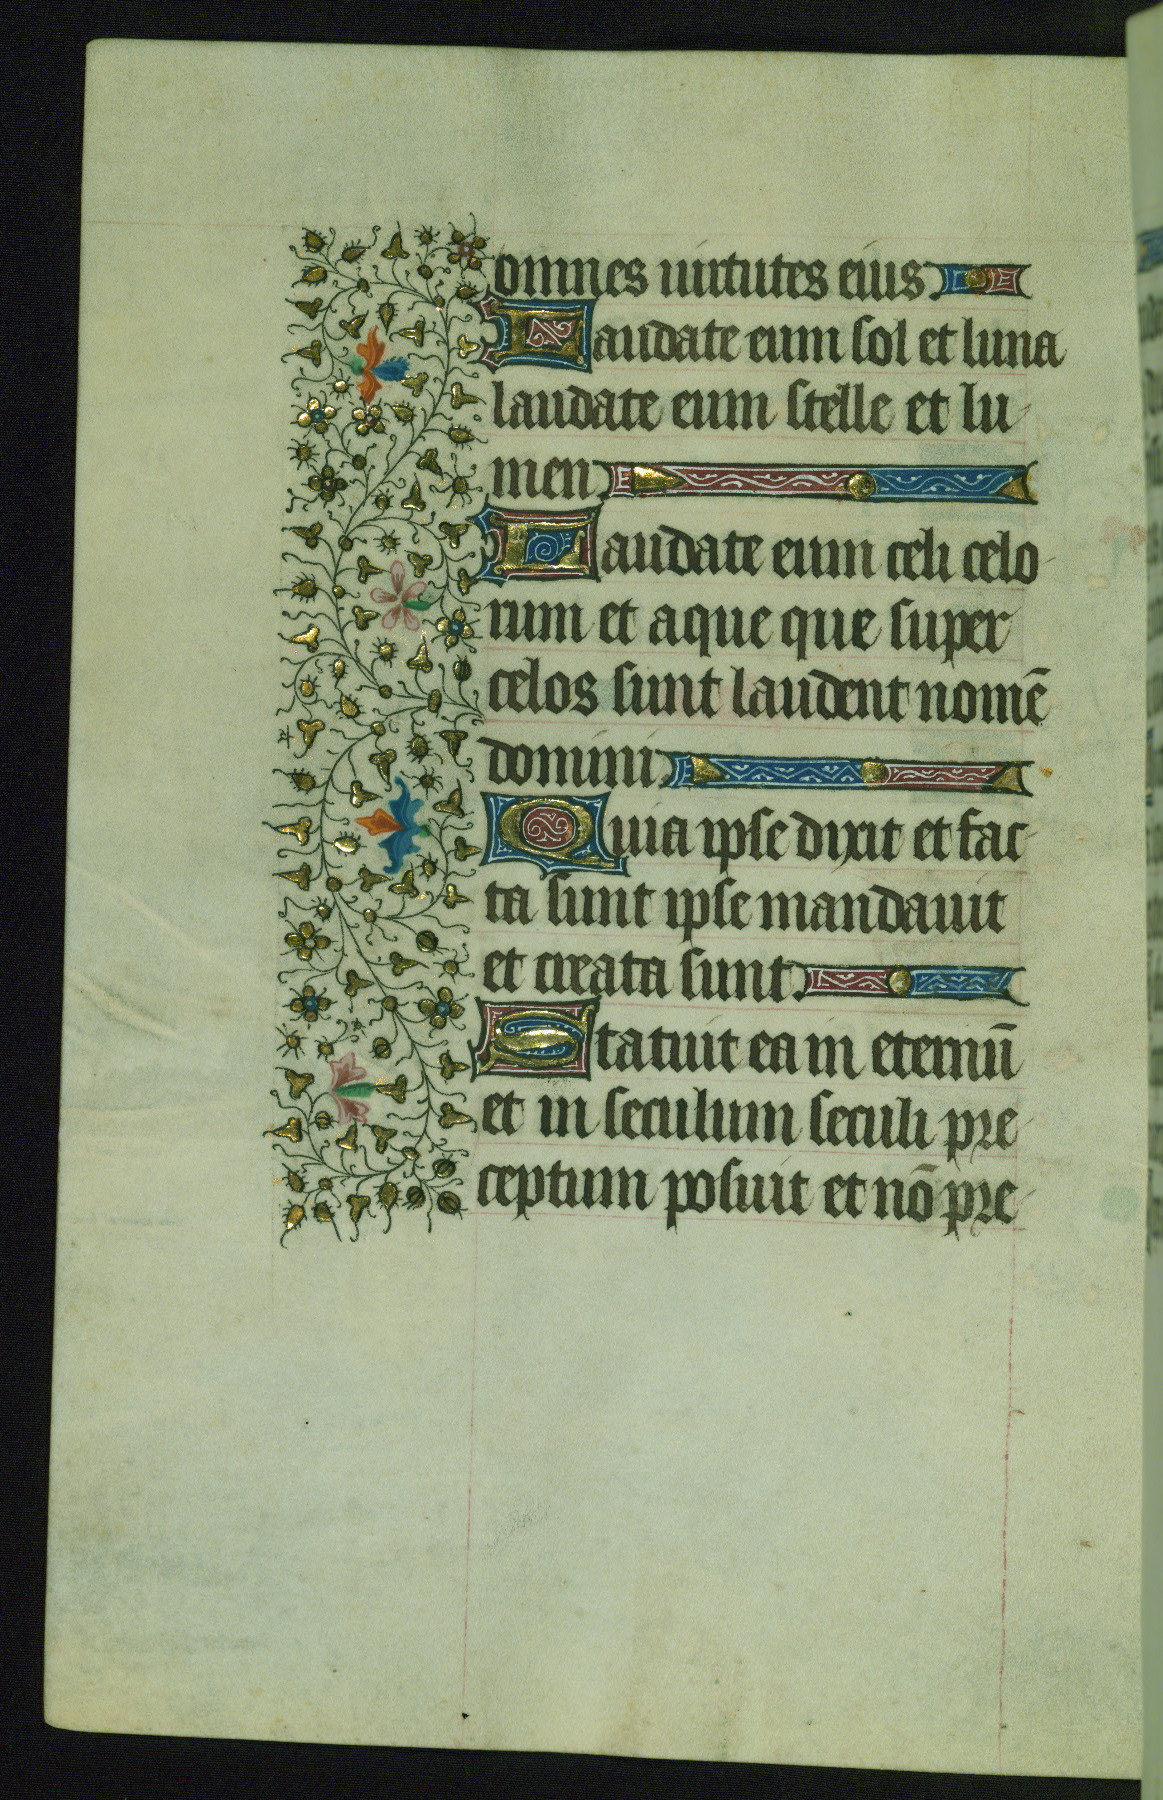 omnes uirtutes eius.
Laudate eum sol et luna
laudate eum stelle et lu
men.
Laudate eum celi celo
rum et aque que super
celos sunt laudent nomē
domini.
Quia ipse dixit et fac
ta sunt ipse mandauit
et creata sunt.
Statuit ea in eternū
et in seculum seculi pre
ceptum posuit et nō pre